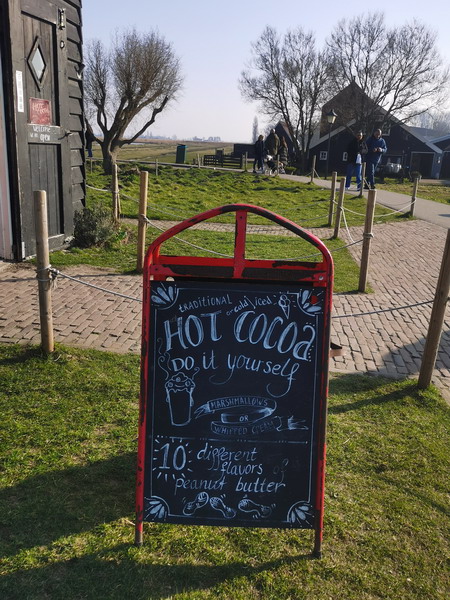 traditional or cold/iced
HOT COCOA
DO it yourself
MARSHMALLOWS
OR
WHIPPED CREAM
10 different
flavors of
peanut butter